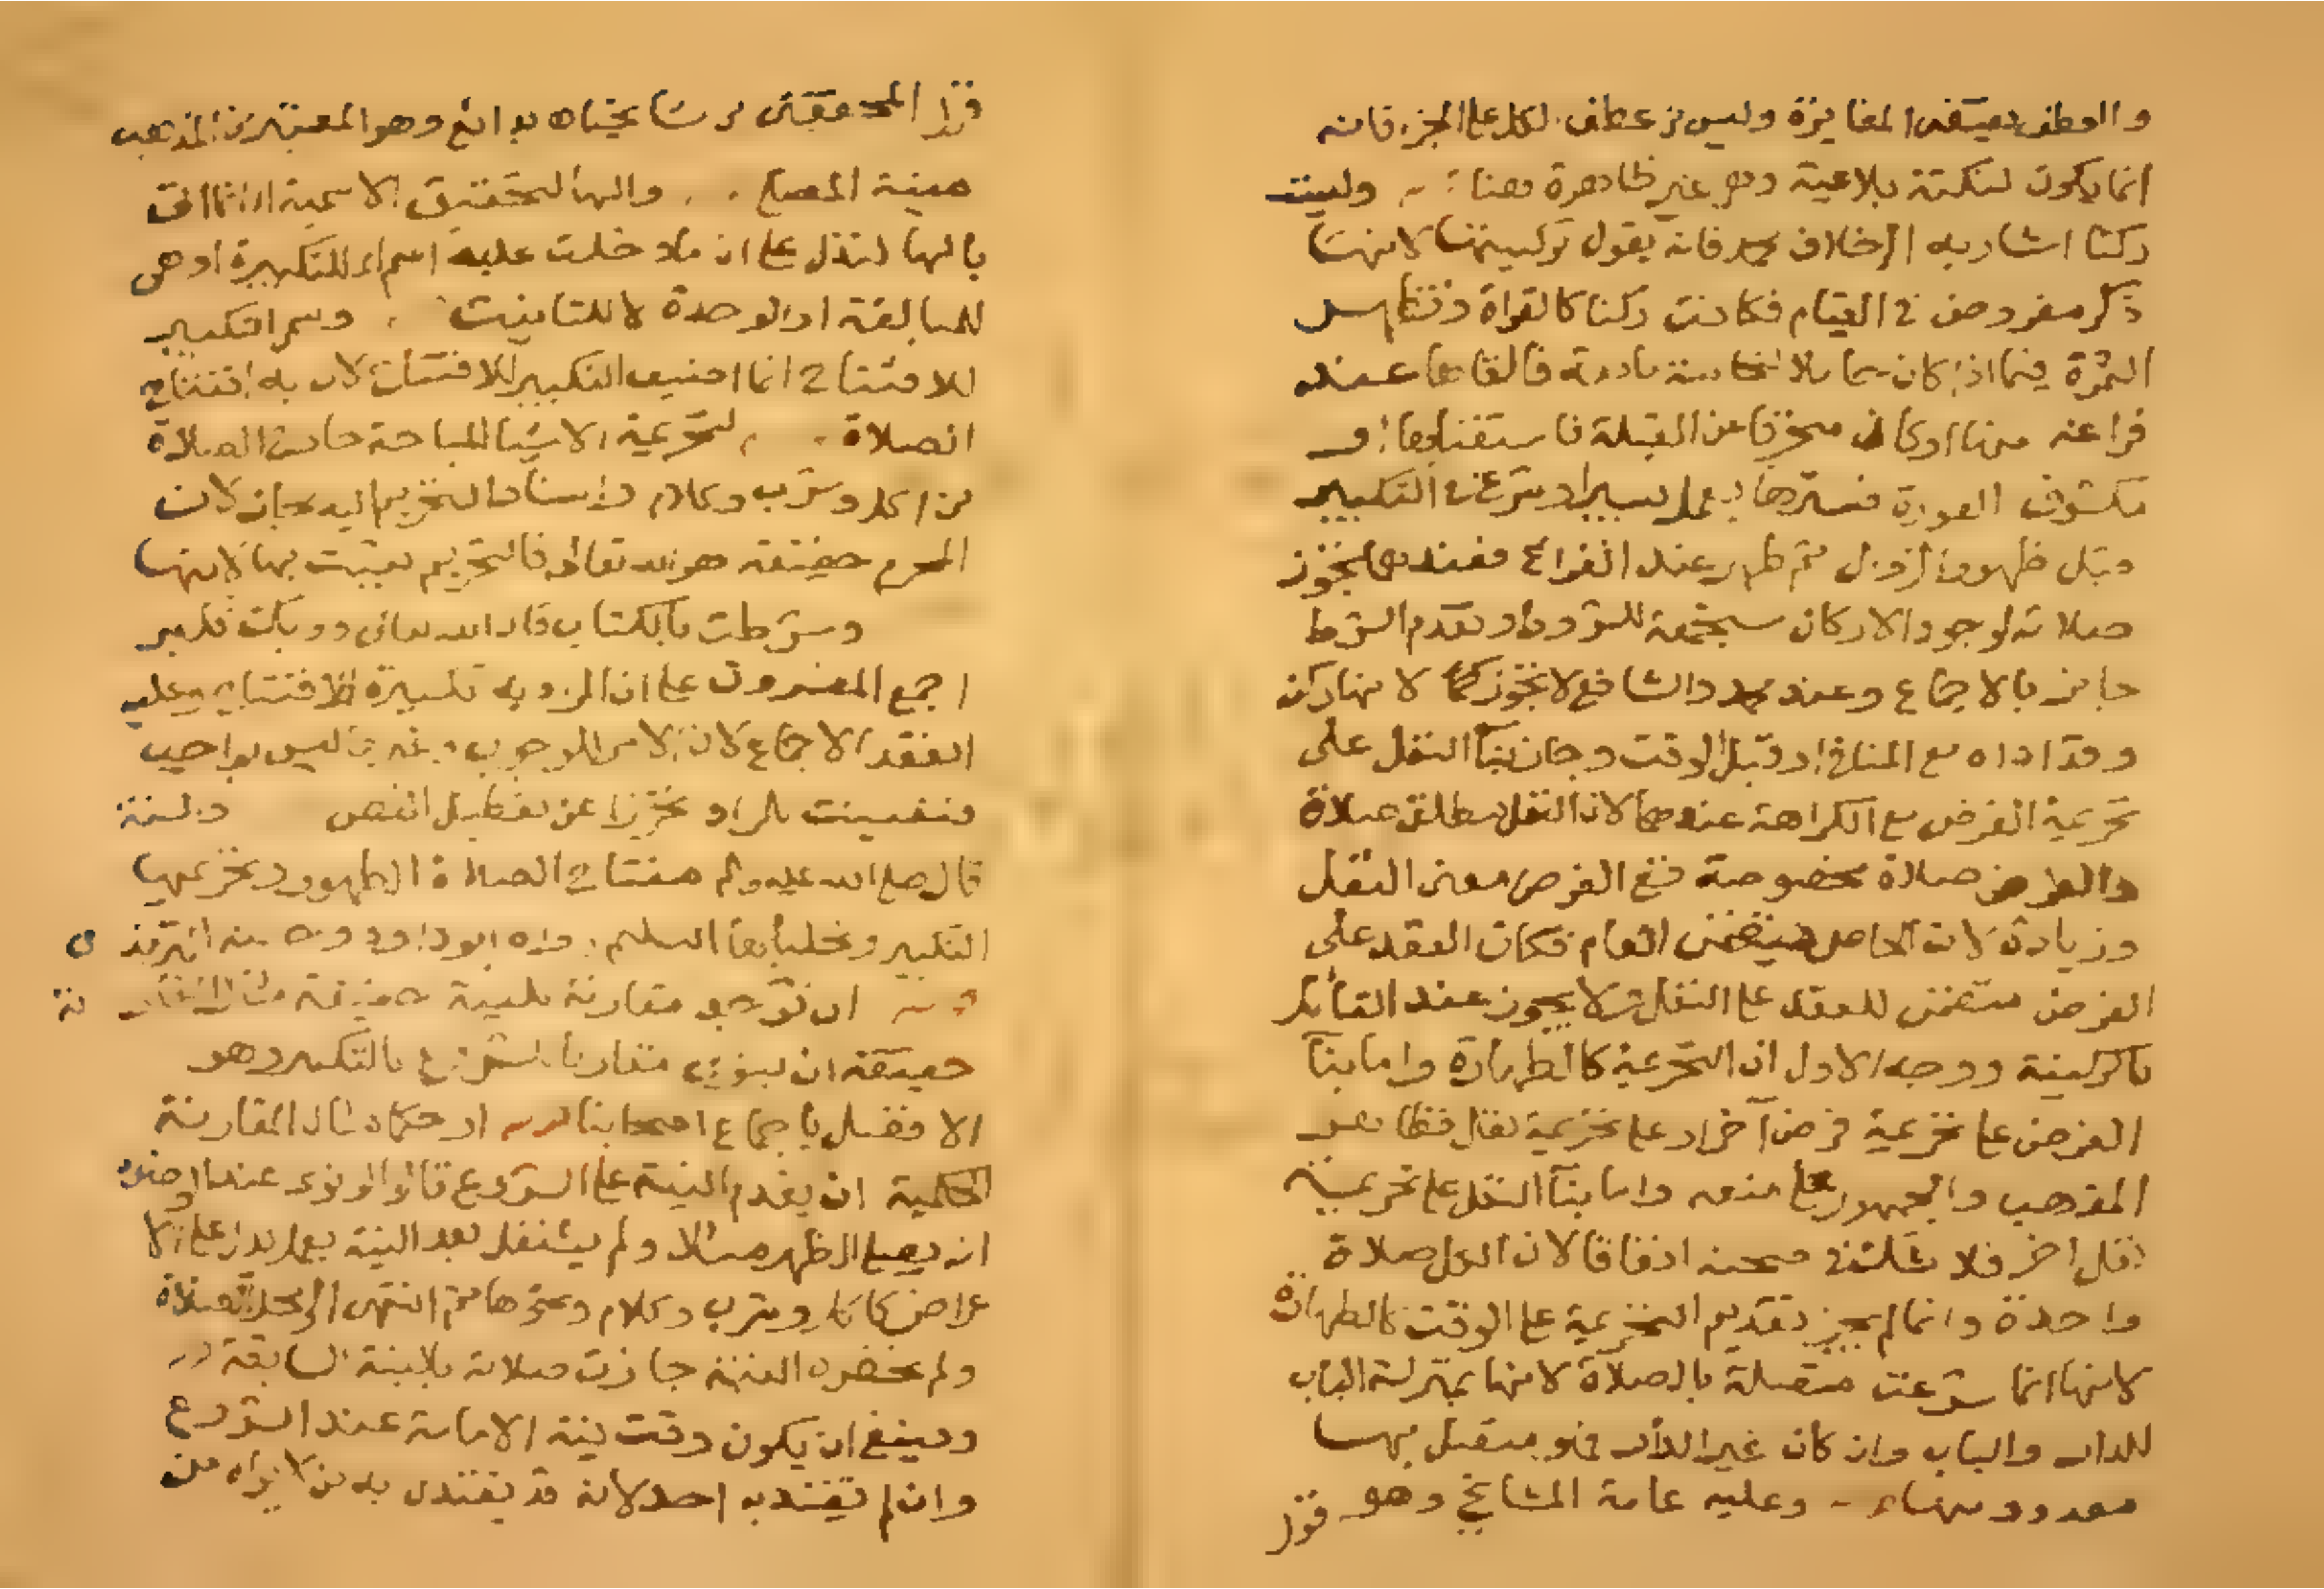 والعطف يقتضى المغايرة وليس من عطف الكل على الجزء فانه
انما يكون لنكتة بلاغية وهى غير ظاهرة هنا وليست
ركنا اشار به الى خلاف محمد فانه يقول بركنيتها لانها
ذكر مفروض فى القيام فكانت ركنا كالقراة وتظهر
الثمرة فيما اذا كان حاملا لنجاسة مانعة فالقاها عند
فراغه منها او كان منحرفا عن القبلة فاستقبلها او
مكشوف العورة فسترها بعمل يسير او شرع فى التكبير
قبل ظهور الزوال ثم ظهر عند الفراغ فعندهما تجوز
صلاته لوجود الاركان مستجمعة للشروط وتقدم الشرط
جائز بالاجماع وعند محمد والشافعى لا تجوز لانها ركن
وقد اداه مع المنافى او قبل الوقت وجاز بنآ النفل على
تحريمة الفرض مع الكراهة عندهما لان النفل مطلق صلاة
والفرض صلاة مخصوصة ففى الفرض معنى النفل
وزيادة لان الخاص يتضمن العام فكان العقد على
الفرض متضمن للعقد على النفل لا يجوز عند القائل
بالركنية ووجه الاول ان التحريمة كالطهارة واما بنآ
الفرض على تحريمة فرض آخر او على تحريمة نفل فظاهر
المذهب والجمهور على منعه واما بنآ النفل على تحريمة
نفل اخر فلا شك فى صحته اتفاقا لان الكل صلاة
واحدة وانما لم يجز تقديم التحريمة على الوقت كالطهارة
لانها انما شرعت متصلة بالصلاة لانها بمنزلة الباب
للدار والباب وان كان غير الدار فهو متصل بها
معدود منها وعليه عامة المشايخ وهو قول
المحققين من مشايخنا بدائع وهو المعتبر من المذهب
منية المصلى والها لتحقيق الاسمية انما اتى
بالها لتدل على ان ما دخلت عليه اسم للتكبيرة او هى
للمبالغة او الوحدة لا للتانيث وهى التكبير
للافتتاح انما اضيف التكبير للافتتاح لان به افتتاح
الصلاة لتحريمه الاشيا المباحة خارج الصلاة
من اكل وشرب وكلام واسناد التحريم اليه مجاز لان
المحرم حقيقة هو الله تعالى فالتحريم يثبت بها لانها
وشرطت بالكتاب قال الله تعالى وربك فكبر
اجمع المفسرون على ان المراد به تكبيرة الافتتاح وعليه
انعقد الاجماع لان الامر للوجوب وغيرها ليس بواجب
فتعينت للمراد تحرزا عن تعطيل النص وبالسنة
قال صلى الله عليه وسلم مفتاح الصلاة الطهور وتحريمها
التكبير وتحليلها التسليم رواه ابو داود وحسنه الترمذى
ان توجد مقارنة للنية حقيقة مثال المقارنة
حقيقة ان ينوى مقارنا للشروع بالتكبير وهو
الافضل باجماع اصحابنا او حكما مثال المقارنة
الحكمية ان يقدم النية على الشروع قالوا لو نوى عند الوضوء
انه يصلى الظهر مثلا ولم يشتغل بعد النية بعمل يدل على الا
عراض كاكل وشرب وكلام ونحوها ثم انتهى الى محل الصلاة
ولم تحضره النية جازت صلاته بالنية السابقة
وينبغى ان يكون وقت نية الامامة عند الشروع
وان لم يقتد به احد لانه قد يقتدى به من لا يراه من